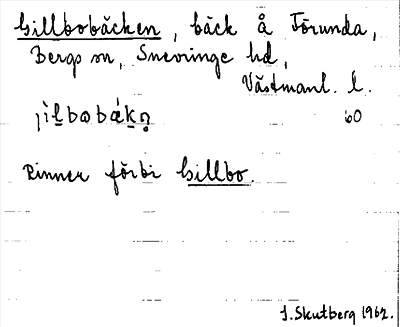 Gillbobäcken, bäck å Törunda,
Bergs sn, Snevringe hd,
Västmanl. l.
60
Rinner förbi Gillbo.
J. Skutberg 1962.